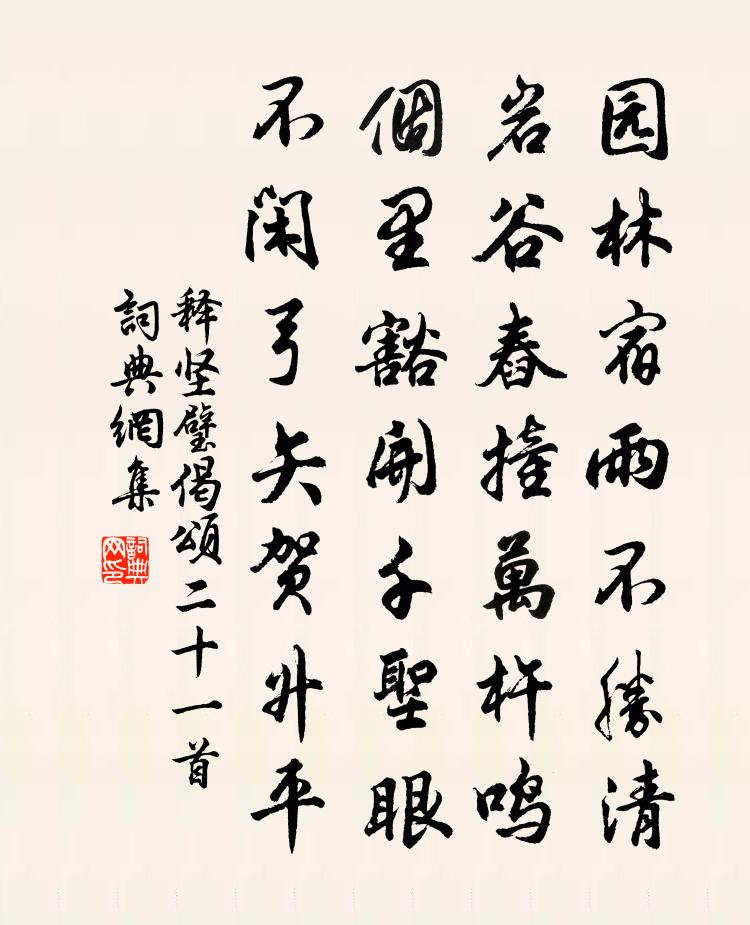 园林宿雨不勝清
岩谷春撞萬杵鸣
個里豁開千聖眼
不閑弓矢贺升平
释坚璧偈頌二十一首
詞典網集
詞典网印